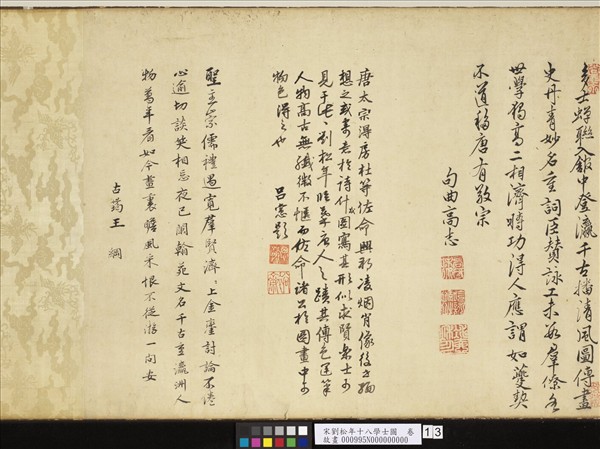 多士蟬聯入館中登瀛千古播清風圖傳畫
史丹青妙名重詞臣贊詠工未必群僚名
世學獨高二相濟時功得人應謂如夔契
不道移唐有敬宗
句曲高志
唐太宗得房杜等佐命興於凌烟肖像後之緬
想之或書於詩什或圖寫其形似求賢哲士少
見于此劉松年睹摹唐人之蹟其傳色運筆
人物高古無纖微不愜而佐命諸公於圖畫中可
物色得之也
呂㦂題
聖主崇儒禮遇寬群賢濟濟上金鑾討論不倦
心逾切談笑相忘夜已闌翰苑文名千古重瀛洲人
物萬年看如今畫裏瞻風采恨不從游一問安
古蕅王綱
宋劉松年十八學士圖 卷
故畫 000995N000000000
13